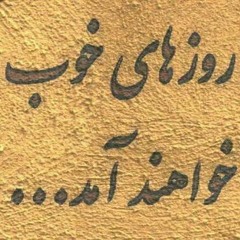 روزهای خوب
خواهند آمد...